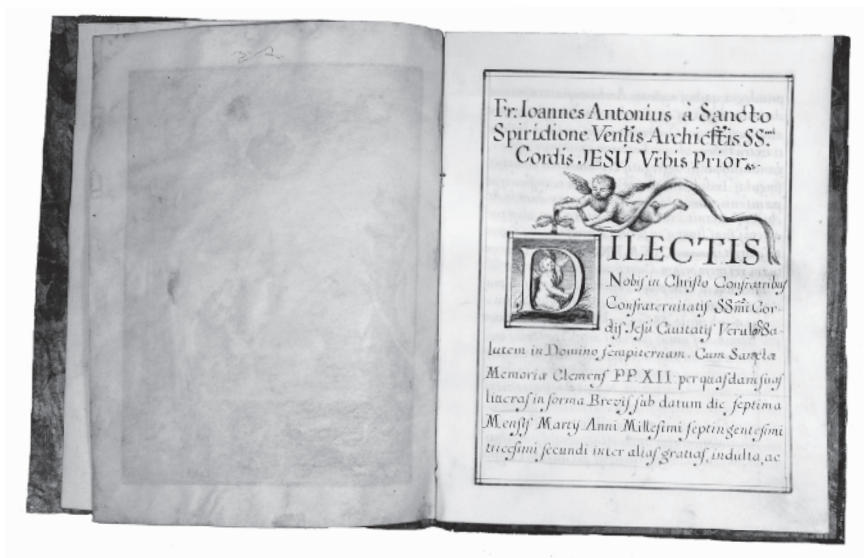 Fr. Ioannes Antonius à Sancto
Spiridione Ven^lis Archicf^tis SS.^mi
Cordis JESU Vrbis Prior &c.
DILECTIS
Nobis in Christo Confratribus
Confraternitatis SSmi Cor-
dis Jesu Ciuitatis Sa-
lutem in Domino sempiternam. Cum Sancta
Memoria Clemens PP XII per quasdam suas
litteras in forma Brevis sub datum die septima
Mensis Martij Anni Millesimi septingentesimi
tricesimi secundi inter alias gratias, indulta, ac